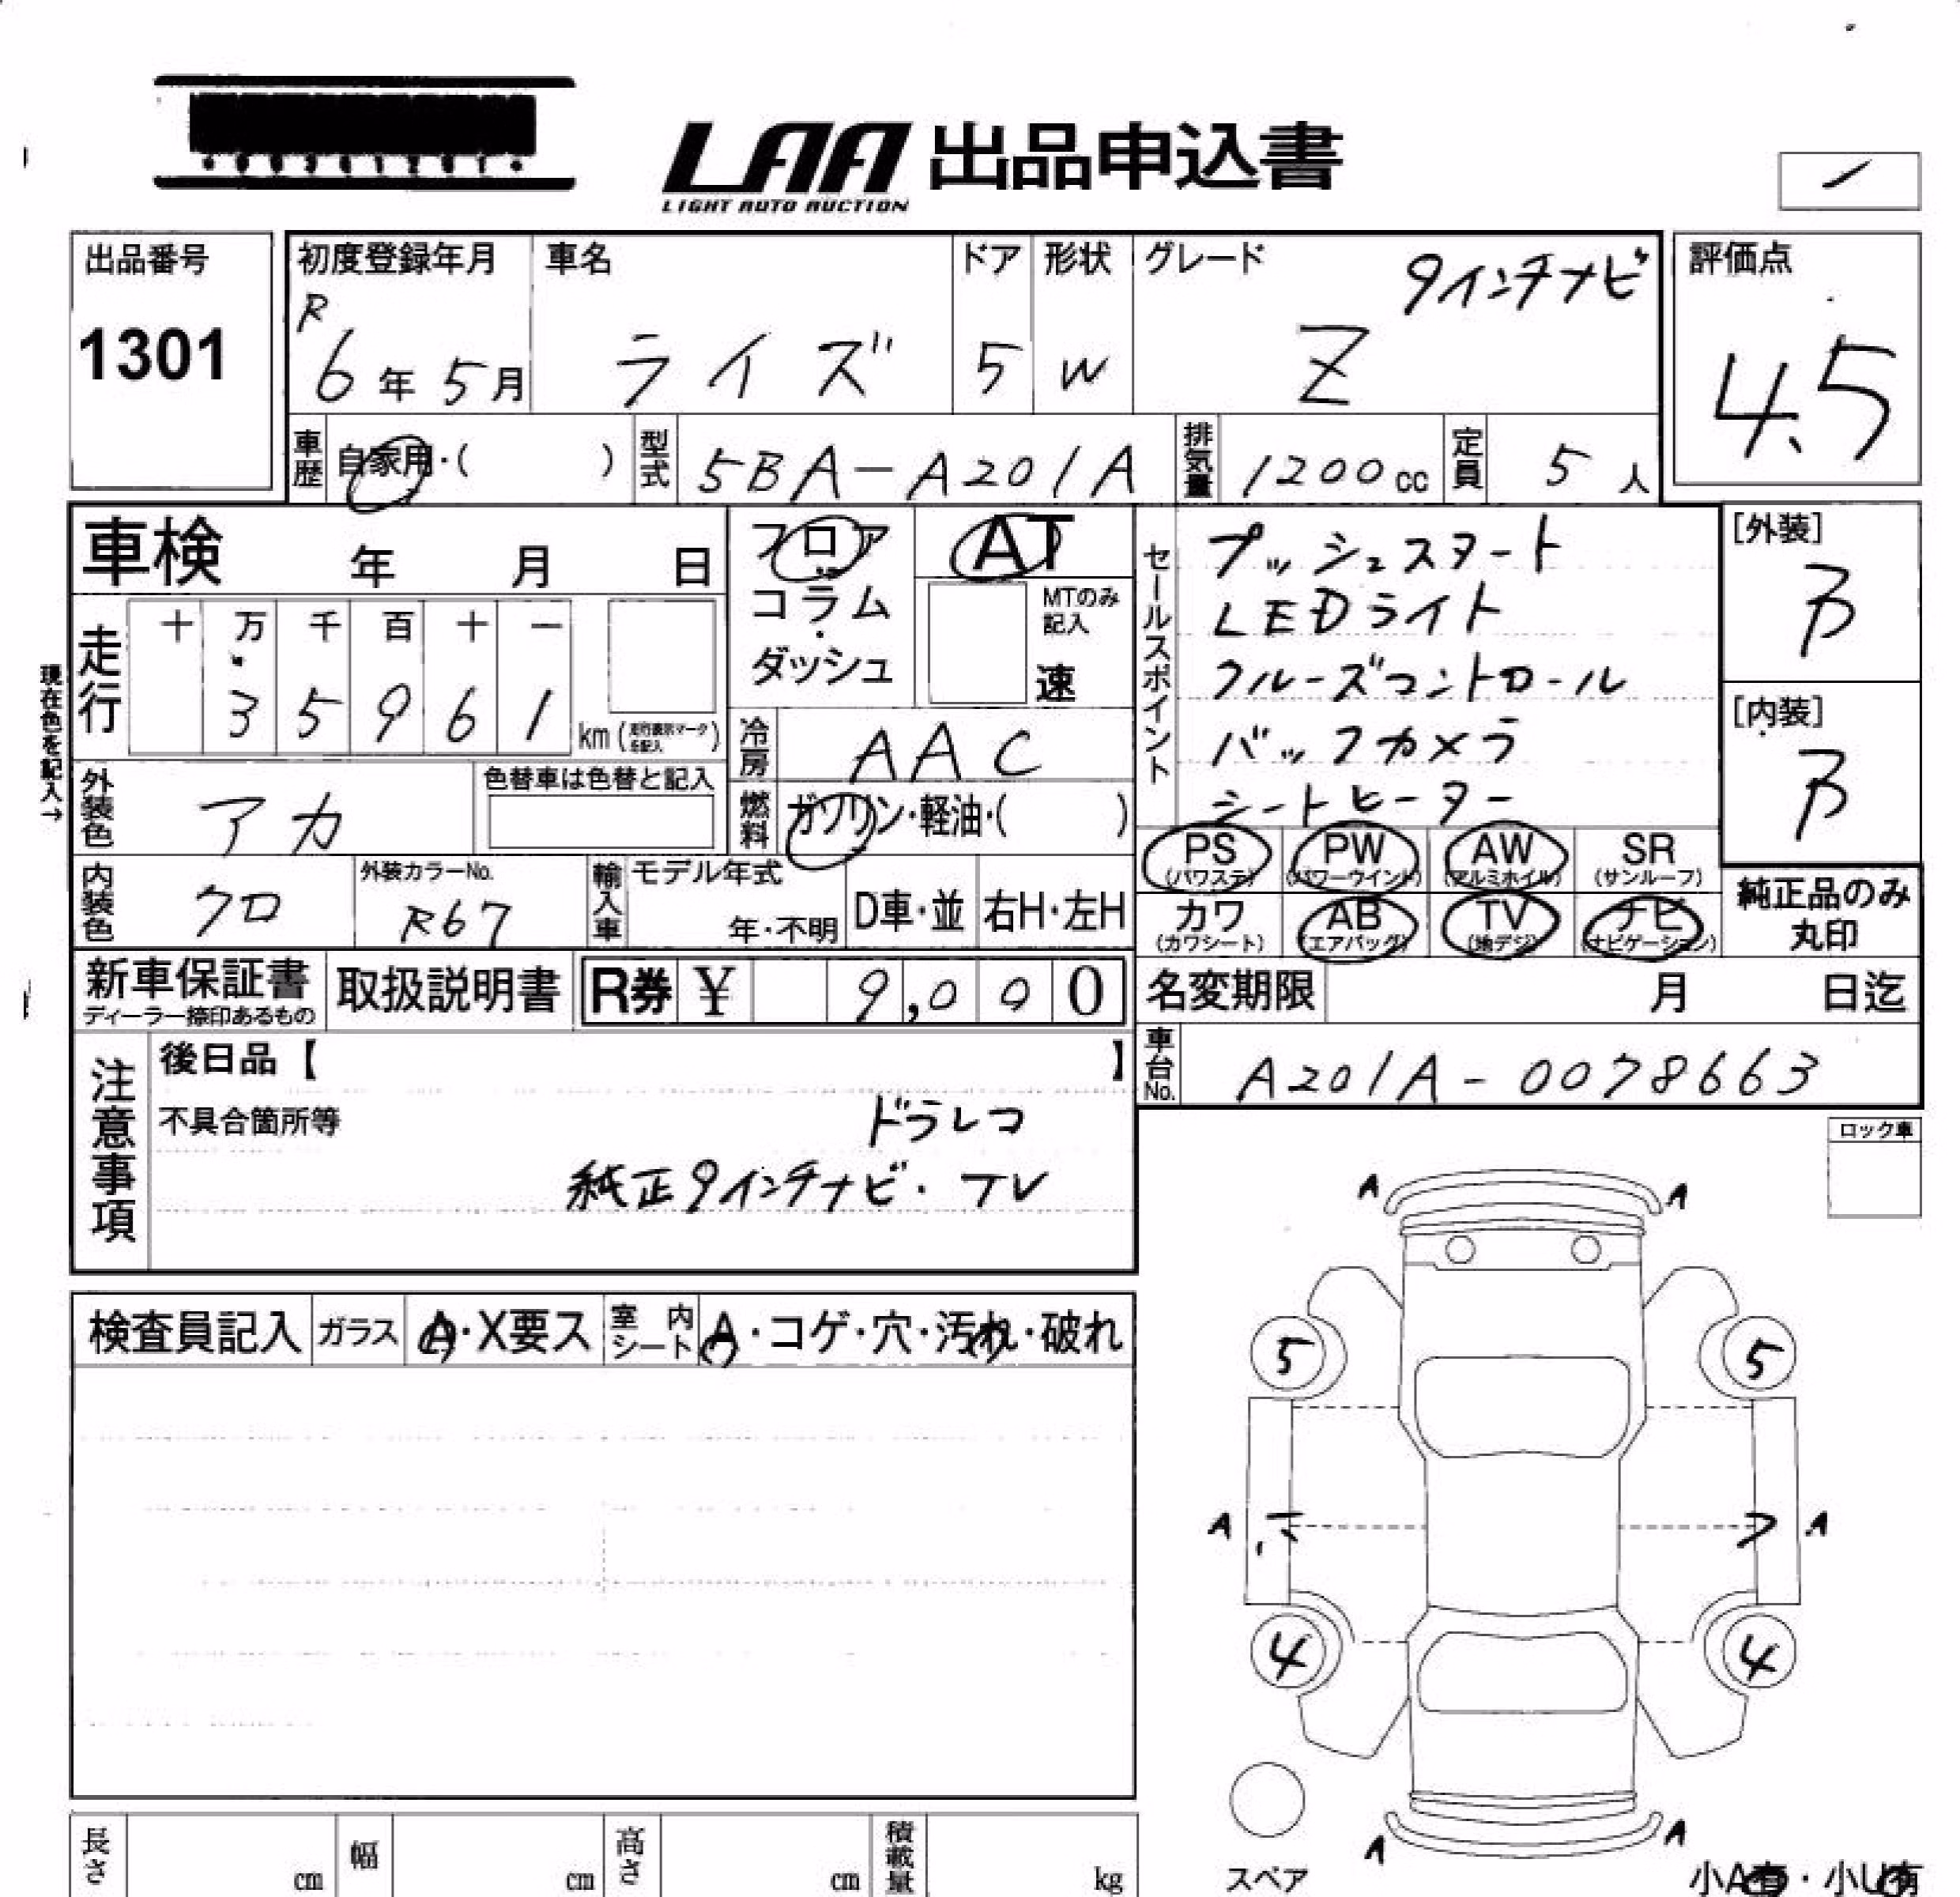 LAA 出品申込書
LIGHT AUTO AUCTION
出品番号
1301
初度登録年月
R
6年5月
車名
ライズ
ドア
5
形状
W
グレード
9インチナビ
Z
評価点
4.5
車歴 自家用・( )
型式 5BA-A201A
排気量 1200cc
定員 5人
車検 年 月 日
走行
十 万 千 百 十 一
3 5 9 6 1 km
現在色を記入→
外装色 アカ
色替車は色替と記入
内装色 クロ
外装カラーNo.
R67
フロア
コラム
・
ダッシュ
AT
MTのみ
記入
速
冷房 AAC
燃料 ガソリン・軽油・( )
輸入車
モデル年式
年・不明
D車・並
右H・左H
セールスポイント
プッシュスタート
LEDライト
クルーズコントロール
バックカメラ
シートヒーター
[外装]
B
[内装]
B
PS
(パワステ)
PW
(パワーウインド)
AW
(アルミホイル)
SR
(サンルーフ)
カワ
(カワシート)
AB
(エアバッグ)
TV
(地デジ)
ナビ
(ナビゲーション)
純正品のみ
丸印
新車保証書
ディーラー捺印あるもの
取扱説明書
R券 ¥ 9,000
名変期限 月 日迄
車台No. A201A-0078663
注意事項
後日品【 】
不具合箇所等
ドラレコ
純正9インチナビ・TV
ロック車
検査員記入
ガラス A・X要ス
室内シート A・コゲ・穴・汚れ・破れ
A A
5 5
A A
4 4
A A
スペア
小A有・小U有
長さ cm
幅 cm
高さ cm
積載量 kg